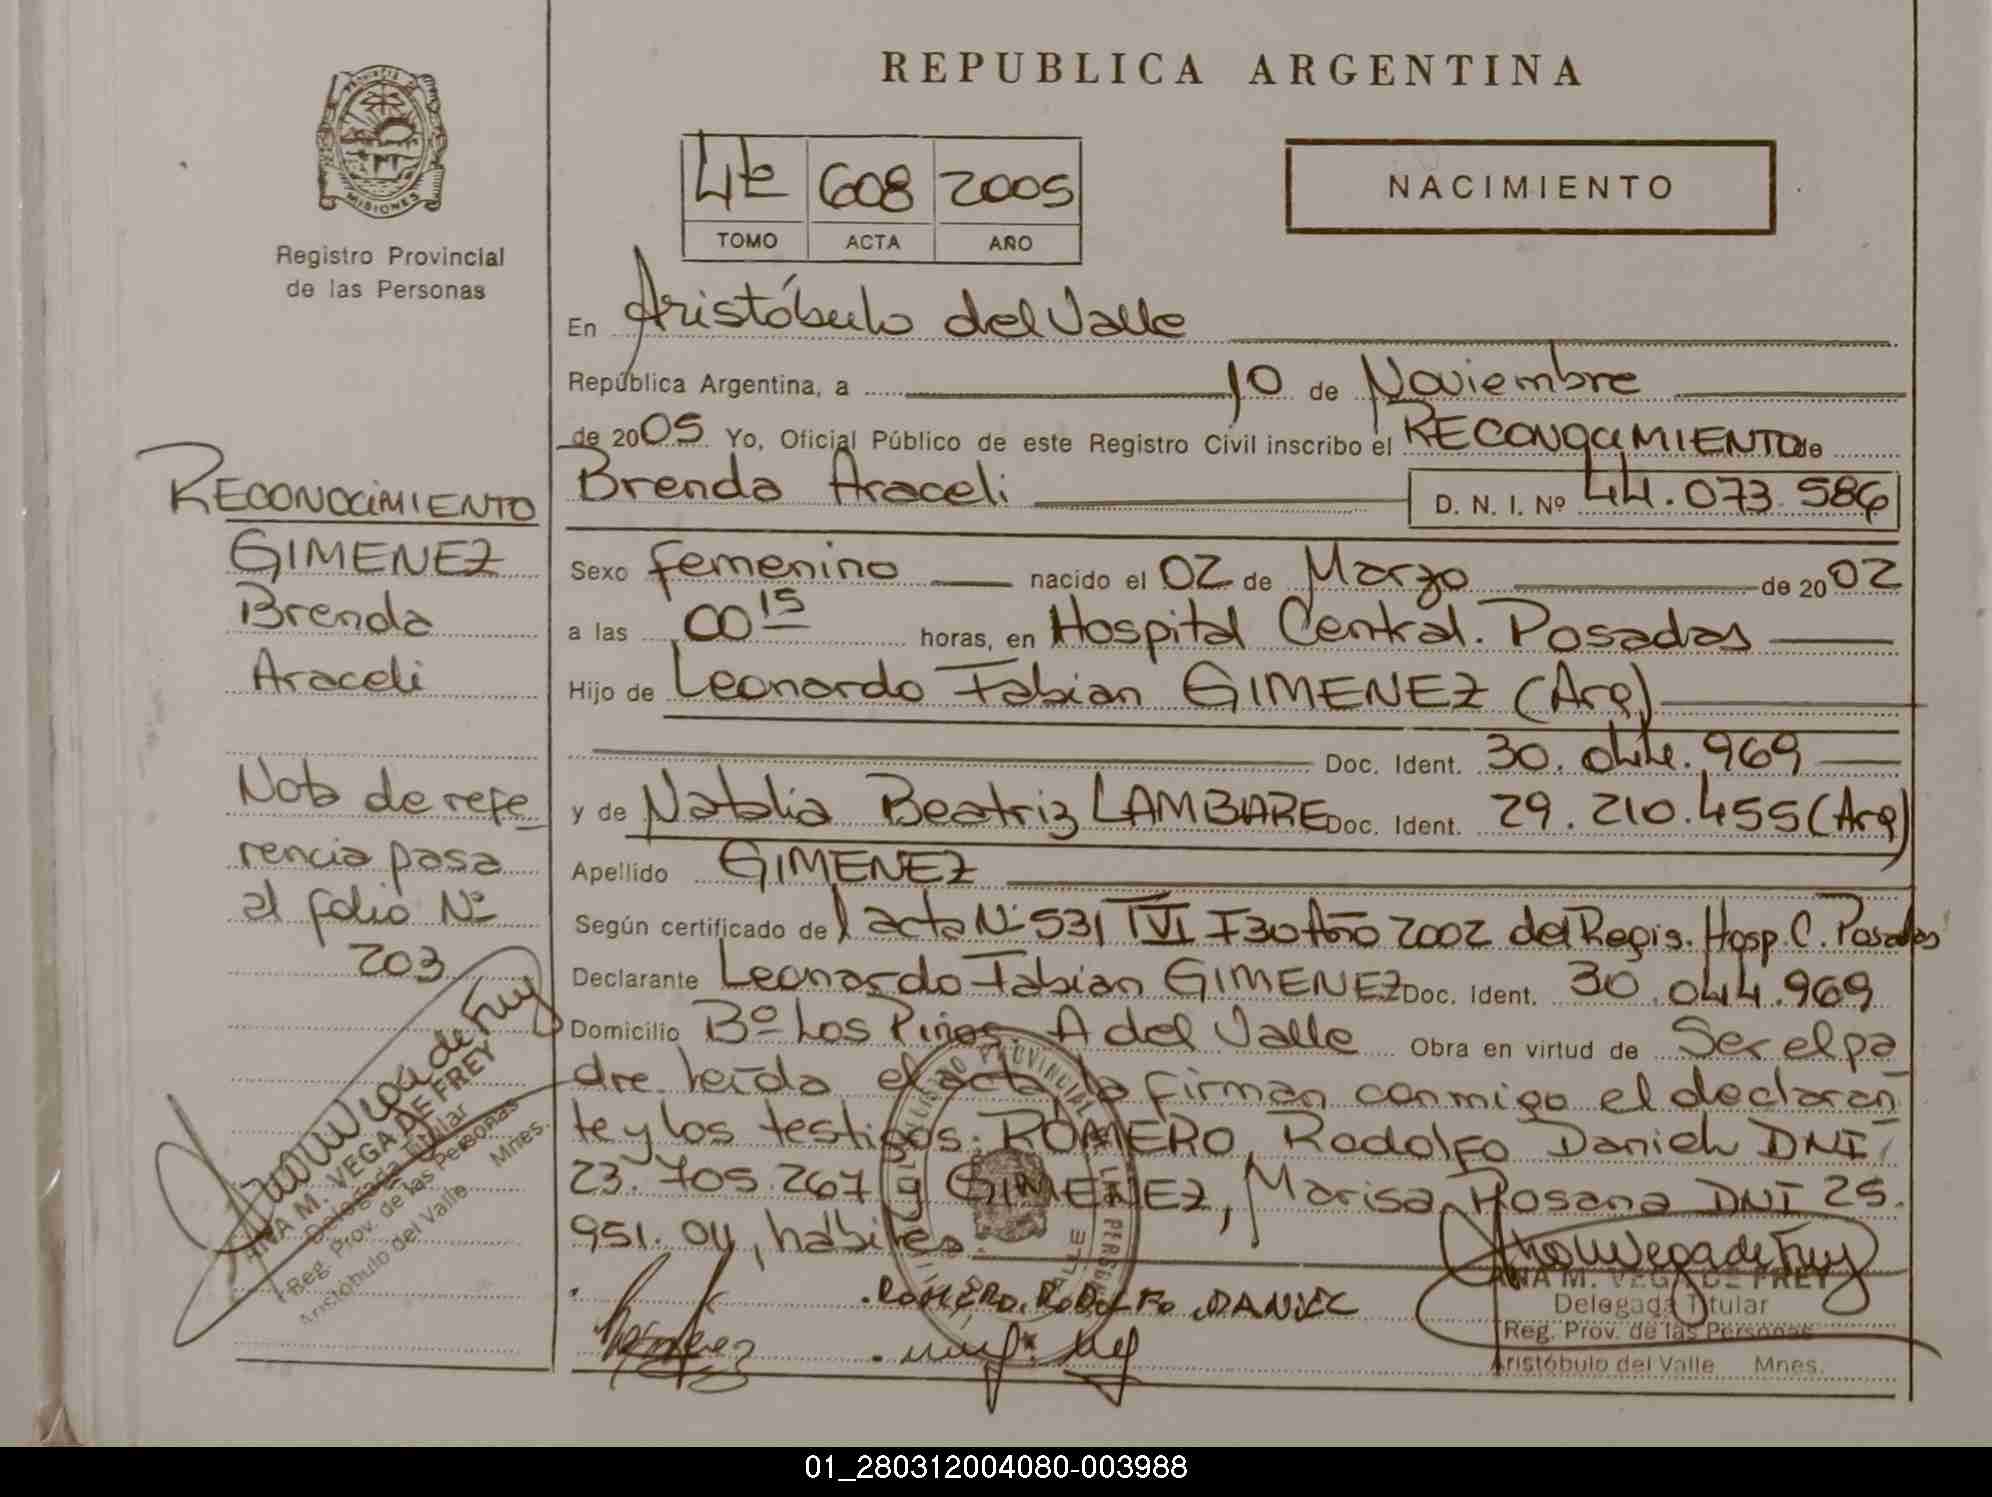 REPUBLICA ARGENTINA
MISIONES
Registro Provincial
de las Personas
4t 608 2005
TOMO ACTA AÑO
NACIMIENTO
En Aristóbulo del Valle
República Argentina, a 10 de Noviembre
de 2005 Yo, Oficial Público de este Registro Civil inscribo el RECONOCIMIENTO de
Brenda Araceli D. N. I. Nº 44.073.586
Sexo femenino nacido el 02 de Marzo de 2002
a las 00 15 horas, en Hospital Central. Posadas
Hijo de Leonardo Fabian GIMENEZ (Arg)
Doc. Ident. 30.044.969
y de Natalia Beatriz LAMBARE Doc. Ident. 29.210.455 (Arg)
Apellido GIMENEZ
Según certificado de l acta Nº 531 TVI F30 Año 2002 del Regis. Hosp. C. Posadas
Declarante Leonardo Fabian GIMENEZ Doc. Ident. 30.044.969
Domicilio Bº Los Pinos. A del Valle Obra en virtud de Ser el pa
dre. leída el acta la firman conmigo el declaran
te y los testigos: ROMERO, Rodolfo Daniel DNI
23.705.267 y GIMENEZ, Marisa Rosana DNI 25.
951.04, hábiles.
ROMERO. RODOLFO DANIEL
ANA M. VEGA DE FREY
Delegada Titular
Reg. Prov. de las Personas
Aristóbulo del Valle Mnes.
RECONOCIMIENTO
GIMENEZ
Brenda
Araceli
Nota de refe
rencia pasa
al folio Nº
203
Ana M. VEGA DE FREY
Delegada Titular
Reg. Prov. de las Personas
Aristóbulo del Valle Mnes.
01_280312004080-003988